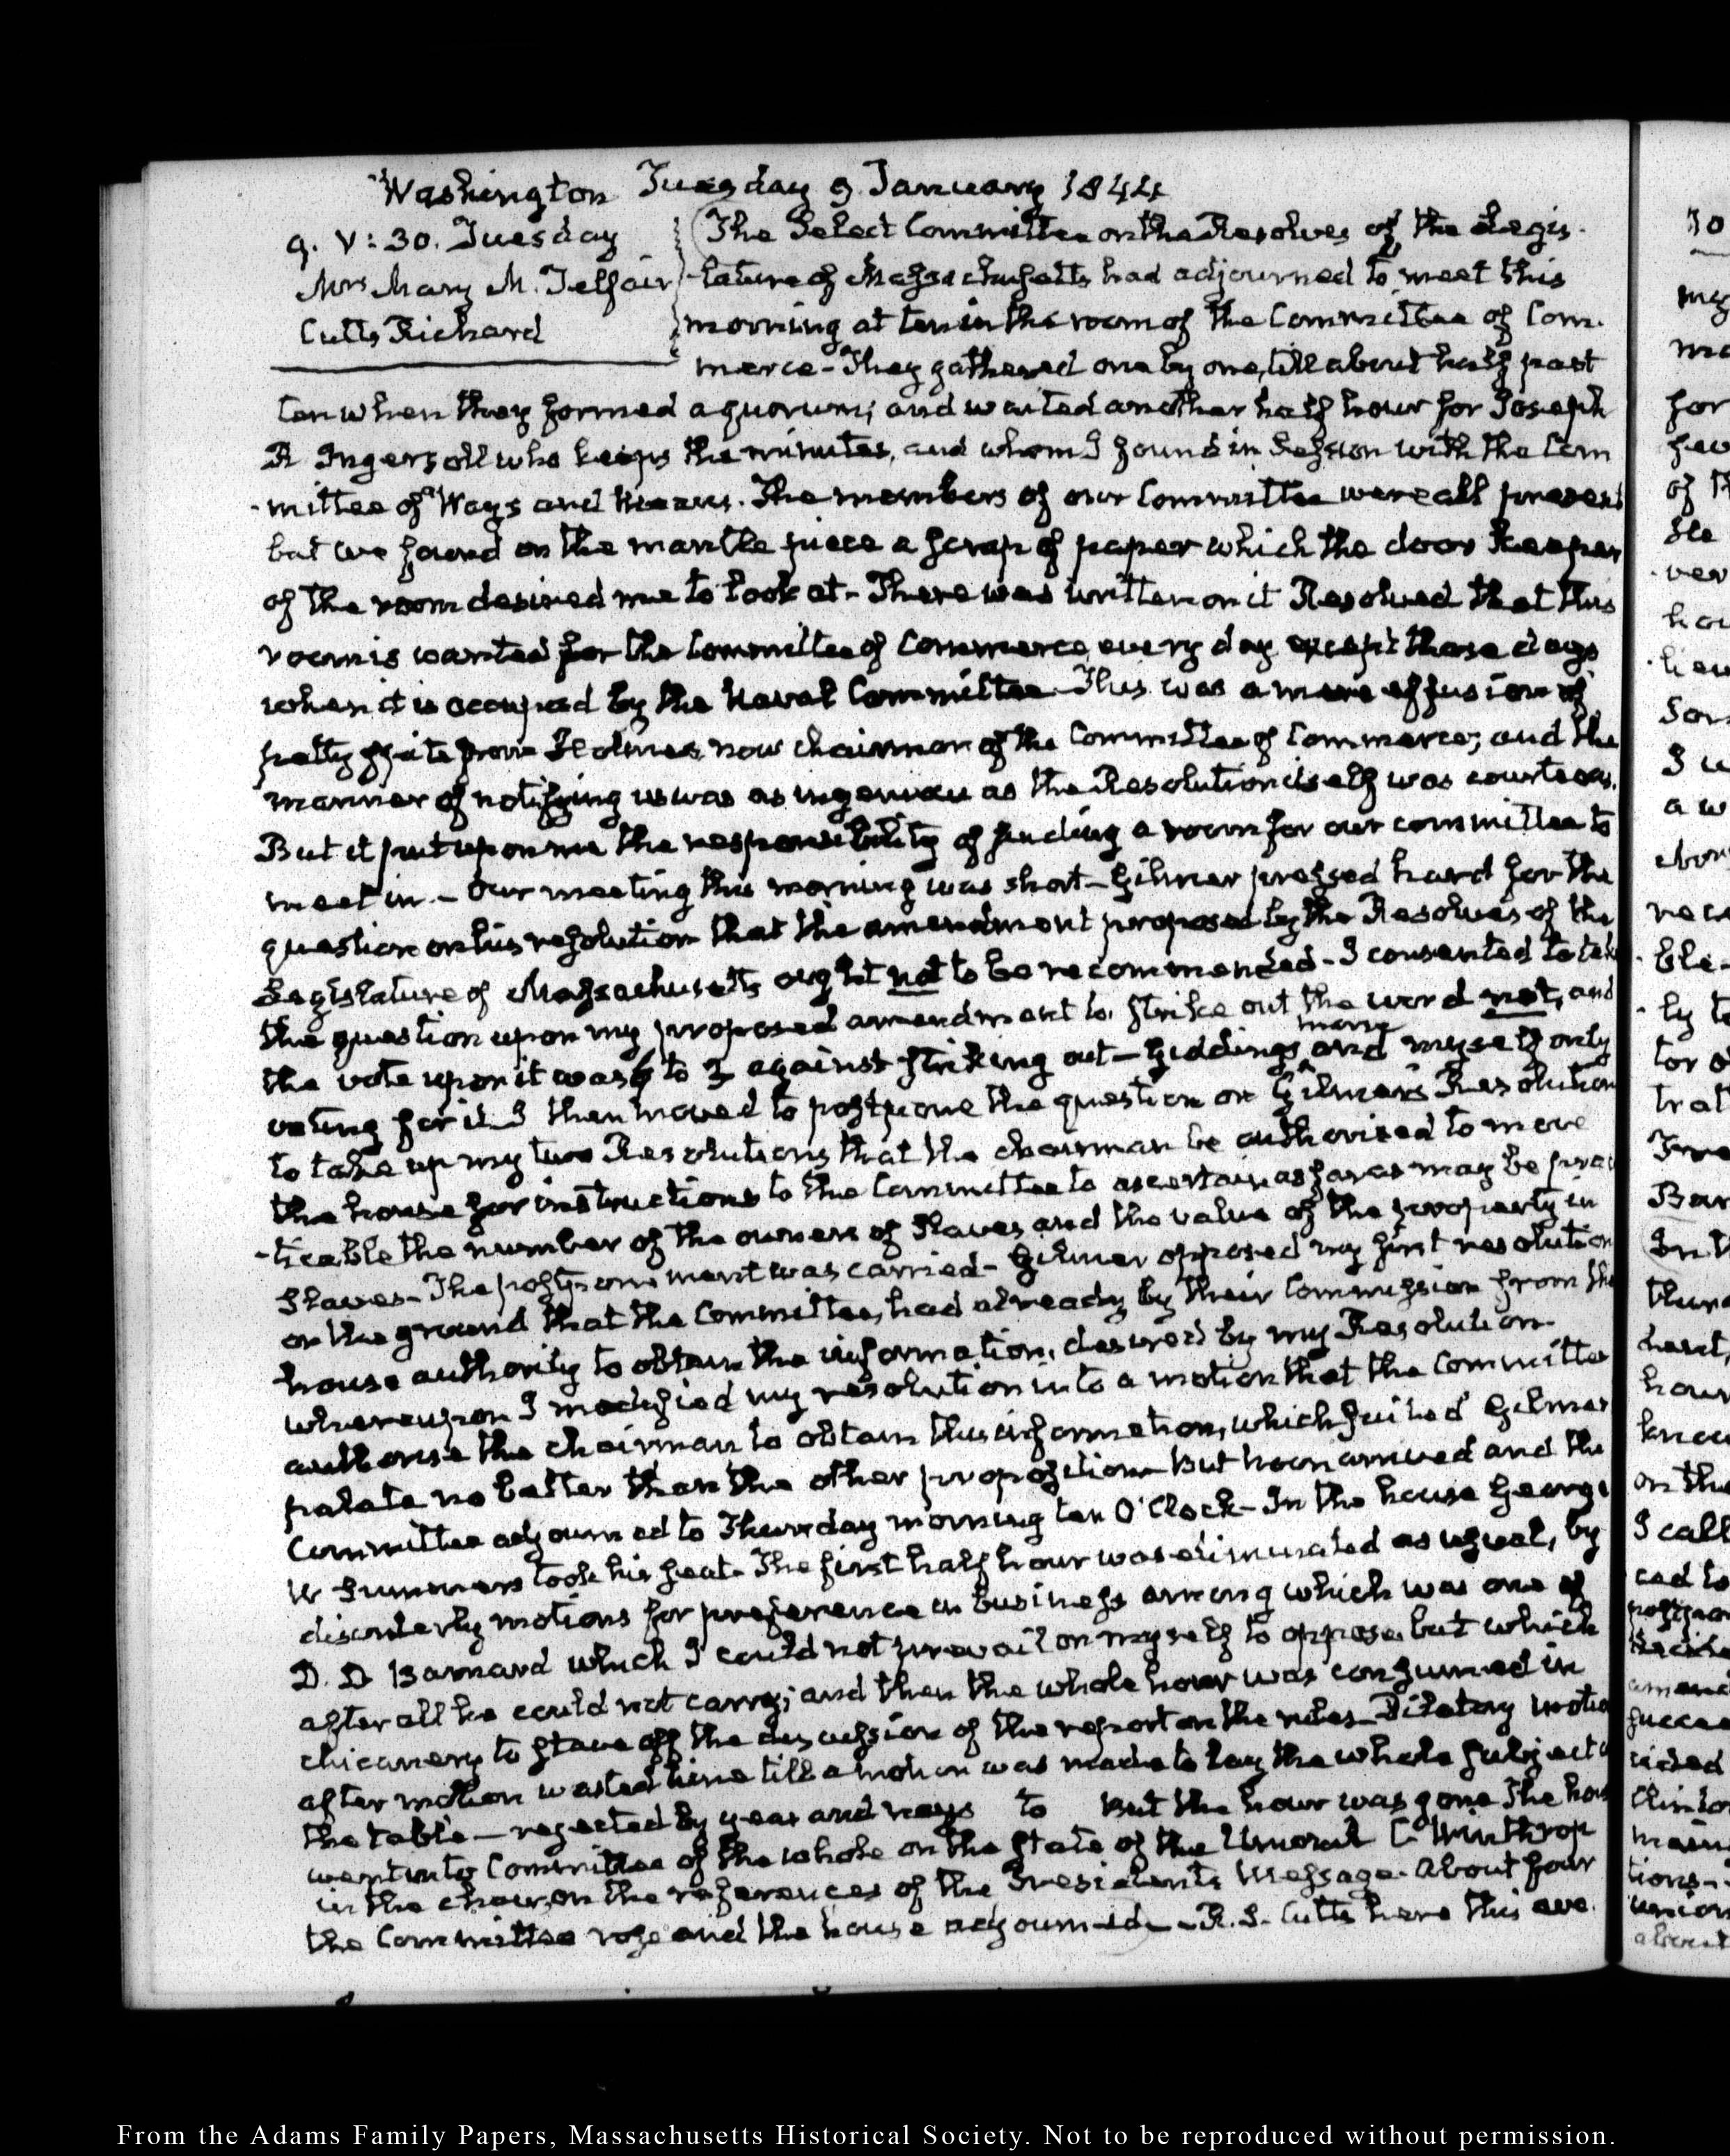 Washington Tuesday 9 January 1844
9. V:30. Tuesday
Mrs Mary M. Telfair
Cutts Richard
The Select Committee on the Resolves of the Legis-
-lature of Massachusetts had adjourned to meet this
morning at ten in the room of the Committee of Com-
merce - They gathered one by one, till about half past
ten when they formed a quorum; and waited another half hour for Joseph
R Ingersoll who keeps the minutes, and whom I found in Session with the Com
-mittee of Ways and Means. The members of our Committee were all present
but we found on the mantle piece a scrap of paper which the door keeper
of the room desired me to look at - There was written on it Resolved that this
room is wanted for the Committee of Commerce every day except those days
when it is occupied by the Naval Committee - This was a mere effusion of
petty spite from Holmes now chairman of the Committee of Commerce; and the
manner of notifying us was as ingenious as the Resolution itself was courteous.
But it put upon me the responsibility of finding a room for our committee to
meet in. - Our meeting this morning was short - Gilmer pressed hard for the
question on his resolution that the amendment proposed by the Resolves of the
Legislature of Massachusetts ought not to be recommended - I consented to take
the question upon my proposed amendment to strike out the word not, and
the vote upon it was 6 to 3 against striking out - Giddings and myself only
voting for it. I then moved to postpone the question on Gilmer's Resolution
to take up my two Resolutions that the chairman be authorised to move
the house for instructions to the Committee to ascertain as far as may be prac
-ticable the number of the owners of Slaves and the value of the property in
Slaves - The postponement was carried - Gilmer opposed my first resolution
on the ground that the Committee, had already by their Commission from the
house authority to obtain the information, desired by my Resolution -
whereupon I modified my resolution into a motion that the Committee
authorise the chairman to obtain this information, which suited Gilmer
palate no better than the other proposition - But noon arrived and the
Committee adjourned to Thursday morning ten O'Clock - In the house George
W Summers took his seat - The first half hour was eliminated as usual, by
disorderly motions for preference in business among which was one of
D. D Barnard which I could not prevail on myself to oppose, but which
after all he could not carry; and then the whole hour was consumed in
chicanery to stave off the discussion of the report on the rules - Dilatory motion
after motion wasted time till a motion was made to lay the whole subject
the table - rejected by yeas and nays to But the hour was gone The house
went into Committee of the whole on the State of the Union R C Winthrop
in the chair, on the references of the President's Message - About four
the Committee rose and the house adjourned - R. D. Cutts here this eve.
From the Adams Family Papers, Massachusetts Historical Society. Not to be reproduced without permission.